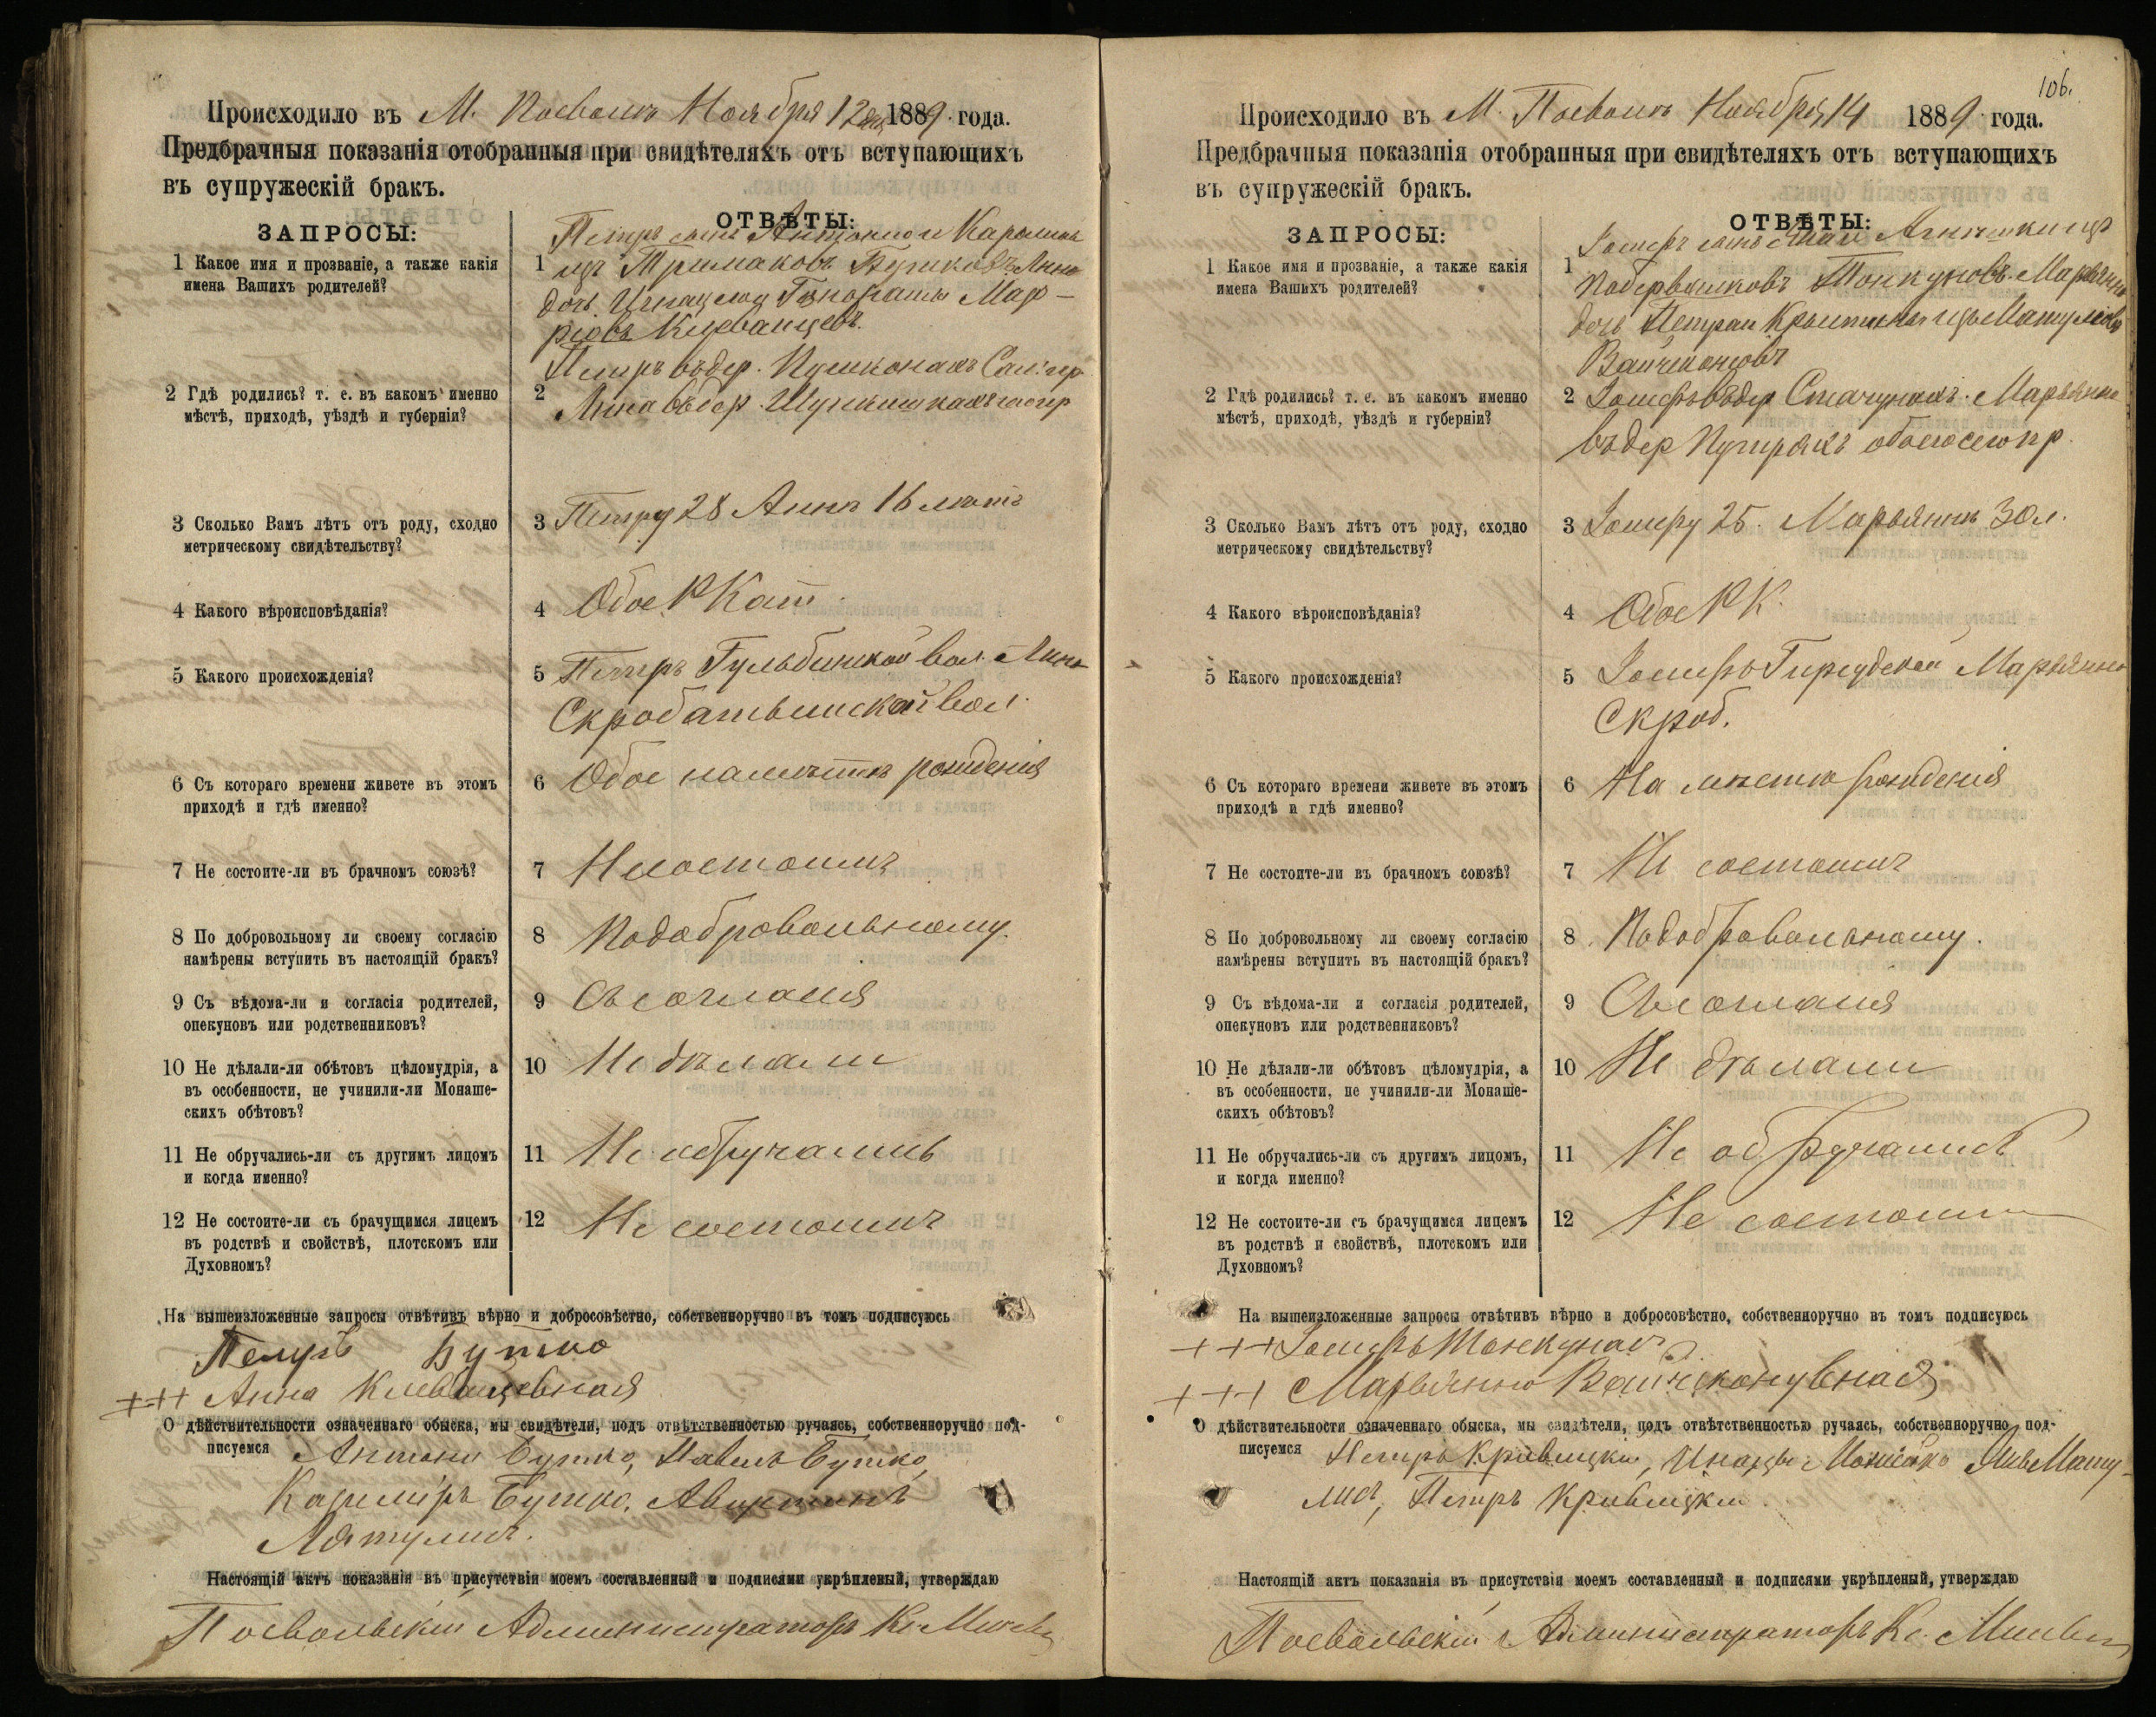 Происходило въ М. Посволь Ноября 12 дня 1889 года.
Предбрачныя показанія отобранныя при свидѣтеляхъ отъ вступающихъ
въ супружескій бракъ.
ЗАПРОСЫ:
ОТВѢТЫ:
1 Какое имя и прозваніе, а также какія
имена Вашихъ родителей?
1 Петръ сынъ Антонія и Каролины
Анна
дочь Игнацыя
2 Гдѣ родились? т. е. въ какомъ именно
мѣстѣ, приходѣ, уѣздѣ и губерніи?
2 Петръ въ дер.
Анна въ дер.
3 Сколько Вамъ лѣтъ отъ роду, сходно
метрическому свидѣтельству?
3 Петру 28 Анна 16 лѣтъ
4 Какого вѣроисповѣданія?
4 Обое Р Кат.
5 Какого происхожденія?
5 Петръ Гульбинской вол. Анна
Скробатышской вол.
6 Съ котораго времени живете въ этомъ
приходѣ и гдѣ именно?
6 Обое на мѣстѣ рожденія
7 Не состоите-ли въ брачномъ союзѣ?
7 Не состоимъ
8 По добровольному ли своему согласію
намѣрены вступить въ настоящій бракъ?
8 По добровольному.
9 Съ вѣдома-ли и согласія родителей,
опекуновъ или родственниковъ?
9 Съ согласія
10 Не дѣлали-ли обѣтовъ цѣломудрія, а
въ особенности, не учинили-ли Монаше-
скихъ обѣтовъ?
10 Не дѣлали
11 Не обручались-ли съ другимъ лицомъ
и когда именно?
11 Не обручались
12 Не состоите-ли съ брачущимся лицемъ
въ родствѣ и свойствѣ, плотскомъ или
Духовномъ?
12 Не состоимъ
На вышеизложенные запросы отвѣтивъ вѣрно и добросовѣстно, собственноручно въ томъ подписуюсь
Петръ Бутко
+++ Анна
О дѣйствительности означеннаго обыска, мы свидѣтели, подъ отвѣтственностью ручаясь, собственноручно под-
писуемся Антони Бутко, Павелъ Бутко,
Казиміръ Бутко, Августинъ
Настоящій актъ показанія въ присутствіи моемъ составленный и подписями укрѣпленый, утверждаю
Посвольскій Администраторъ Кс.
106.
Происходило въ М. Посволь Ноября 14 1889 года.
Предбрачныя показанія отобранныя при свидѣтеляхъ отъ вступающихъ
въ супружескій бракъ.
ЗАПРОСЫ:
ОТВѢТЫ:
1 Какое имя и прозваніе, а также какія
имена Вашихъ родителей?
1 Іосифъ сынъ
Марьянна
дочь Петра и
2 Гдѣ родились? т. е. въ какомъ именно
мѣстѣ, приходѣ, уѣздѣ и губерніи?
2 Іосифъ въ дер. Марьянна
въ дер обое сего пр.
3 Сколько Вамъ лѣтъ отъ роду, сходно
метрическому свидѣтельству?
3 Іосифу 25. Марьяннѣ 30 л.
4 Какого вѣроисповѣданія?
4 Обое Р К.
5 Какого происхожденія?
5 Іосифъ Марьянна
Скроб.
6 Съ котораго времени живете въ этомъ
приходѣ и гдѣ именно?
6 На мѣстѣ рожденія
7 Не состоите-ли въ брачномъ союзѣ?
7 Не состоимъ
8 По добровольному ли своему согласію
намѣрены вступить въ настоящій бракъ?
8 По добровольному.
9 Съ вѣдома-ли и согласія родителей,
опекуновъ или родственниковъ?
9 Съ согласія
10 Не дѣлали-ли обѣтовъ цѣломудрія, а
въ особенности, не учинили-ли Монаше-
скихъ обѣтовъ?
10 Не дѣлали
11 Не обручались-ли съ другимъ лицомъ,
и когда именно?
11 Не обручались
12 Не состоите-ли съ брачущимся лицемъ
въ родствѣ и свойствѣ, плотскомъ или
Духовномъ?
12 Не состоимъ
На вышеизложенные запросы отвѣтивъ вѣрно и добросовѣстно, собственноручно въ томъ подписуюсь
+++ Іосифъ
+++ Марьянна
О дѣйствительности означеннаго обыска, мы свидѣтели, подъ отвѣтственностью ручаясь, собственноручно под-
писуемся Петръ Кривицкій,
Петръ Кривицкій
Настоящій актъ показанія въ присутствіи моемъ составленный и подписями укрѣпленый, утверждаю
Посвольскій Администраторъ Кс.